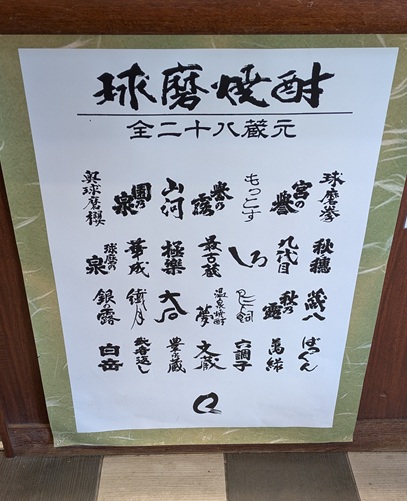 球磨焼酎
全二十八蔵元
球磨拳
宮の誉
もっこす
誉の露
山河
園の泉
奥球磨櫻
秋穂
九代目
しろ
極樂
華成
球磨の泉
蔵八
秋の露
温泉焼酎
夢
大石
銀の露
六調子
文蔵
豊永蔵
武者返し
白岳